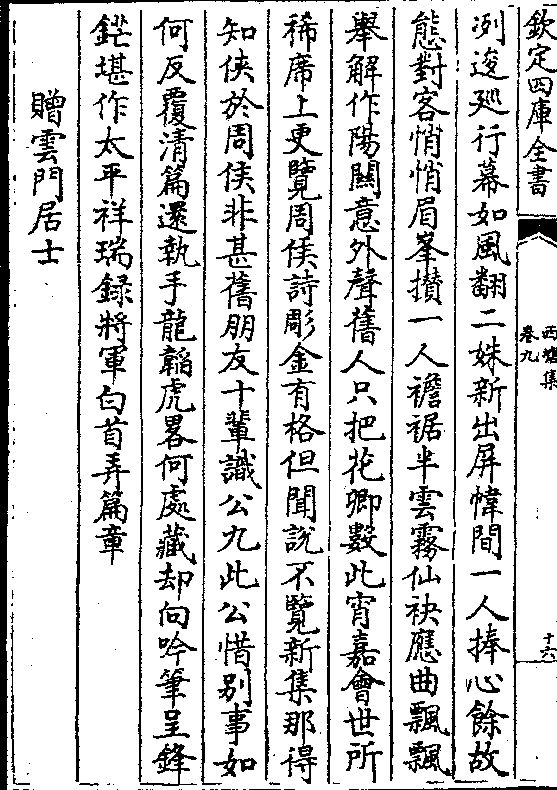 欽定四庫全書
西塘集
卷九
十六
冽逡廵行幕如風翻二姝新出屏幃間一人捧心餘故
態對客悄悄眉峯攅一人襜裾半雲霧仙袂應曲飄飄
舉解作陽關意外聲舊人只把花卿數此宵嘉會世所
稀席上更覽周侯詩彫金有格但聞説不覽新集那得
知侯於周侯非甚舊朋友十輩識公九此公惜别事如
何反覆清篇還執手龍韜虎畧何處藏却向吟筆呈鋒
鋩堪作太平祥瑞録將軍白首弄篇章
贈雲門居士